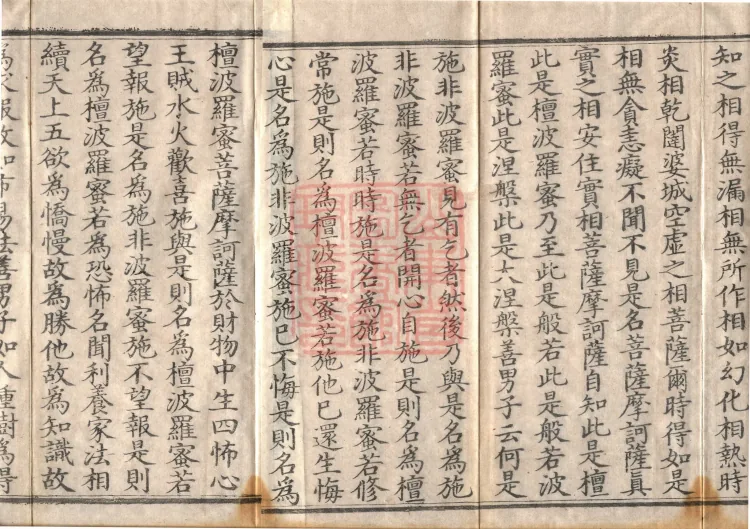 知之相得無漏相無所作相如幻化相熱時
炎相乾闥婆城空虛之相菩薩爾時得如是
相無貪恚癡不聞不見是名菩薩摩訶薩眞
實之相安住實相菩薩摩訶薩自知此是檀
此是檀波羅蜜乃至此是般若此是般若波
羅蜜此是涅槃此是大涅槃善男子云何是
施非波羅蜜見有乞者然後乃與是名爲施
非波羅蜜若無乞者開心自施是則名爲檀
波羅蜜若時時施是名爲施非波羅蜜若修
常施是則名爲檀波羅蜜若施他已還生悔
心是名爲施非波羅蜜施已不悔是則名爲
檀波羅蜜菩薩摩訶薩於財物中生四怖心
王賊水火歡喜施與是則名爲檀波羅蜜若
望報施是名爲施非波羅蜜施不望報是則
名爲檀波羅蜜若爲恐怖名聞利養家法相
續天上五欲爲憍慢故爲勝他故爲知識故
爲來報故如市易法善男子如人種樹爲得